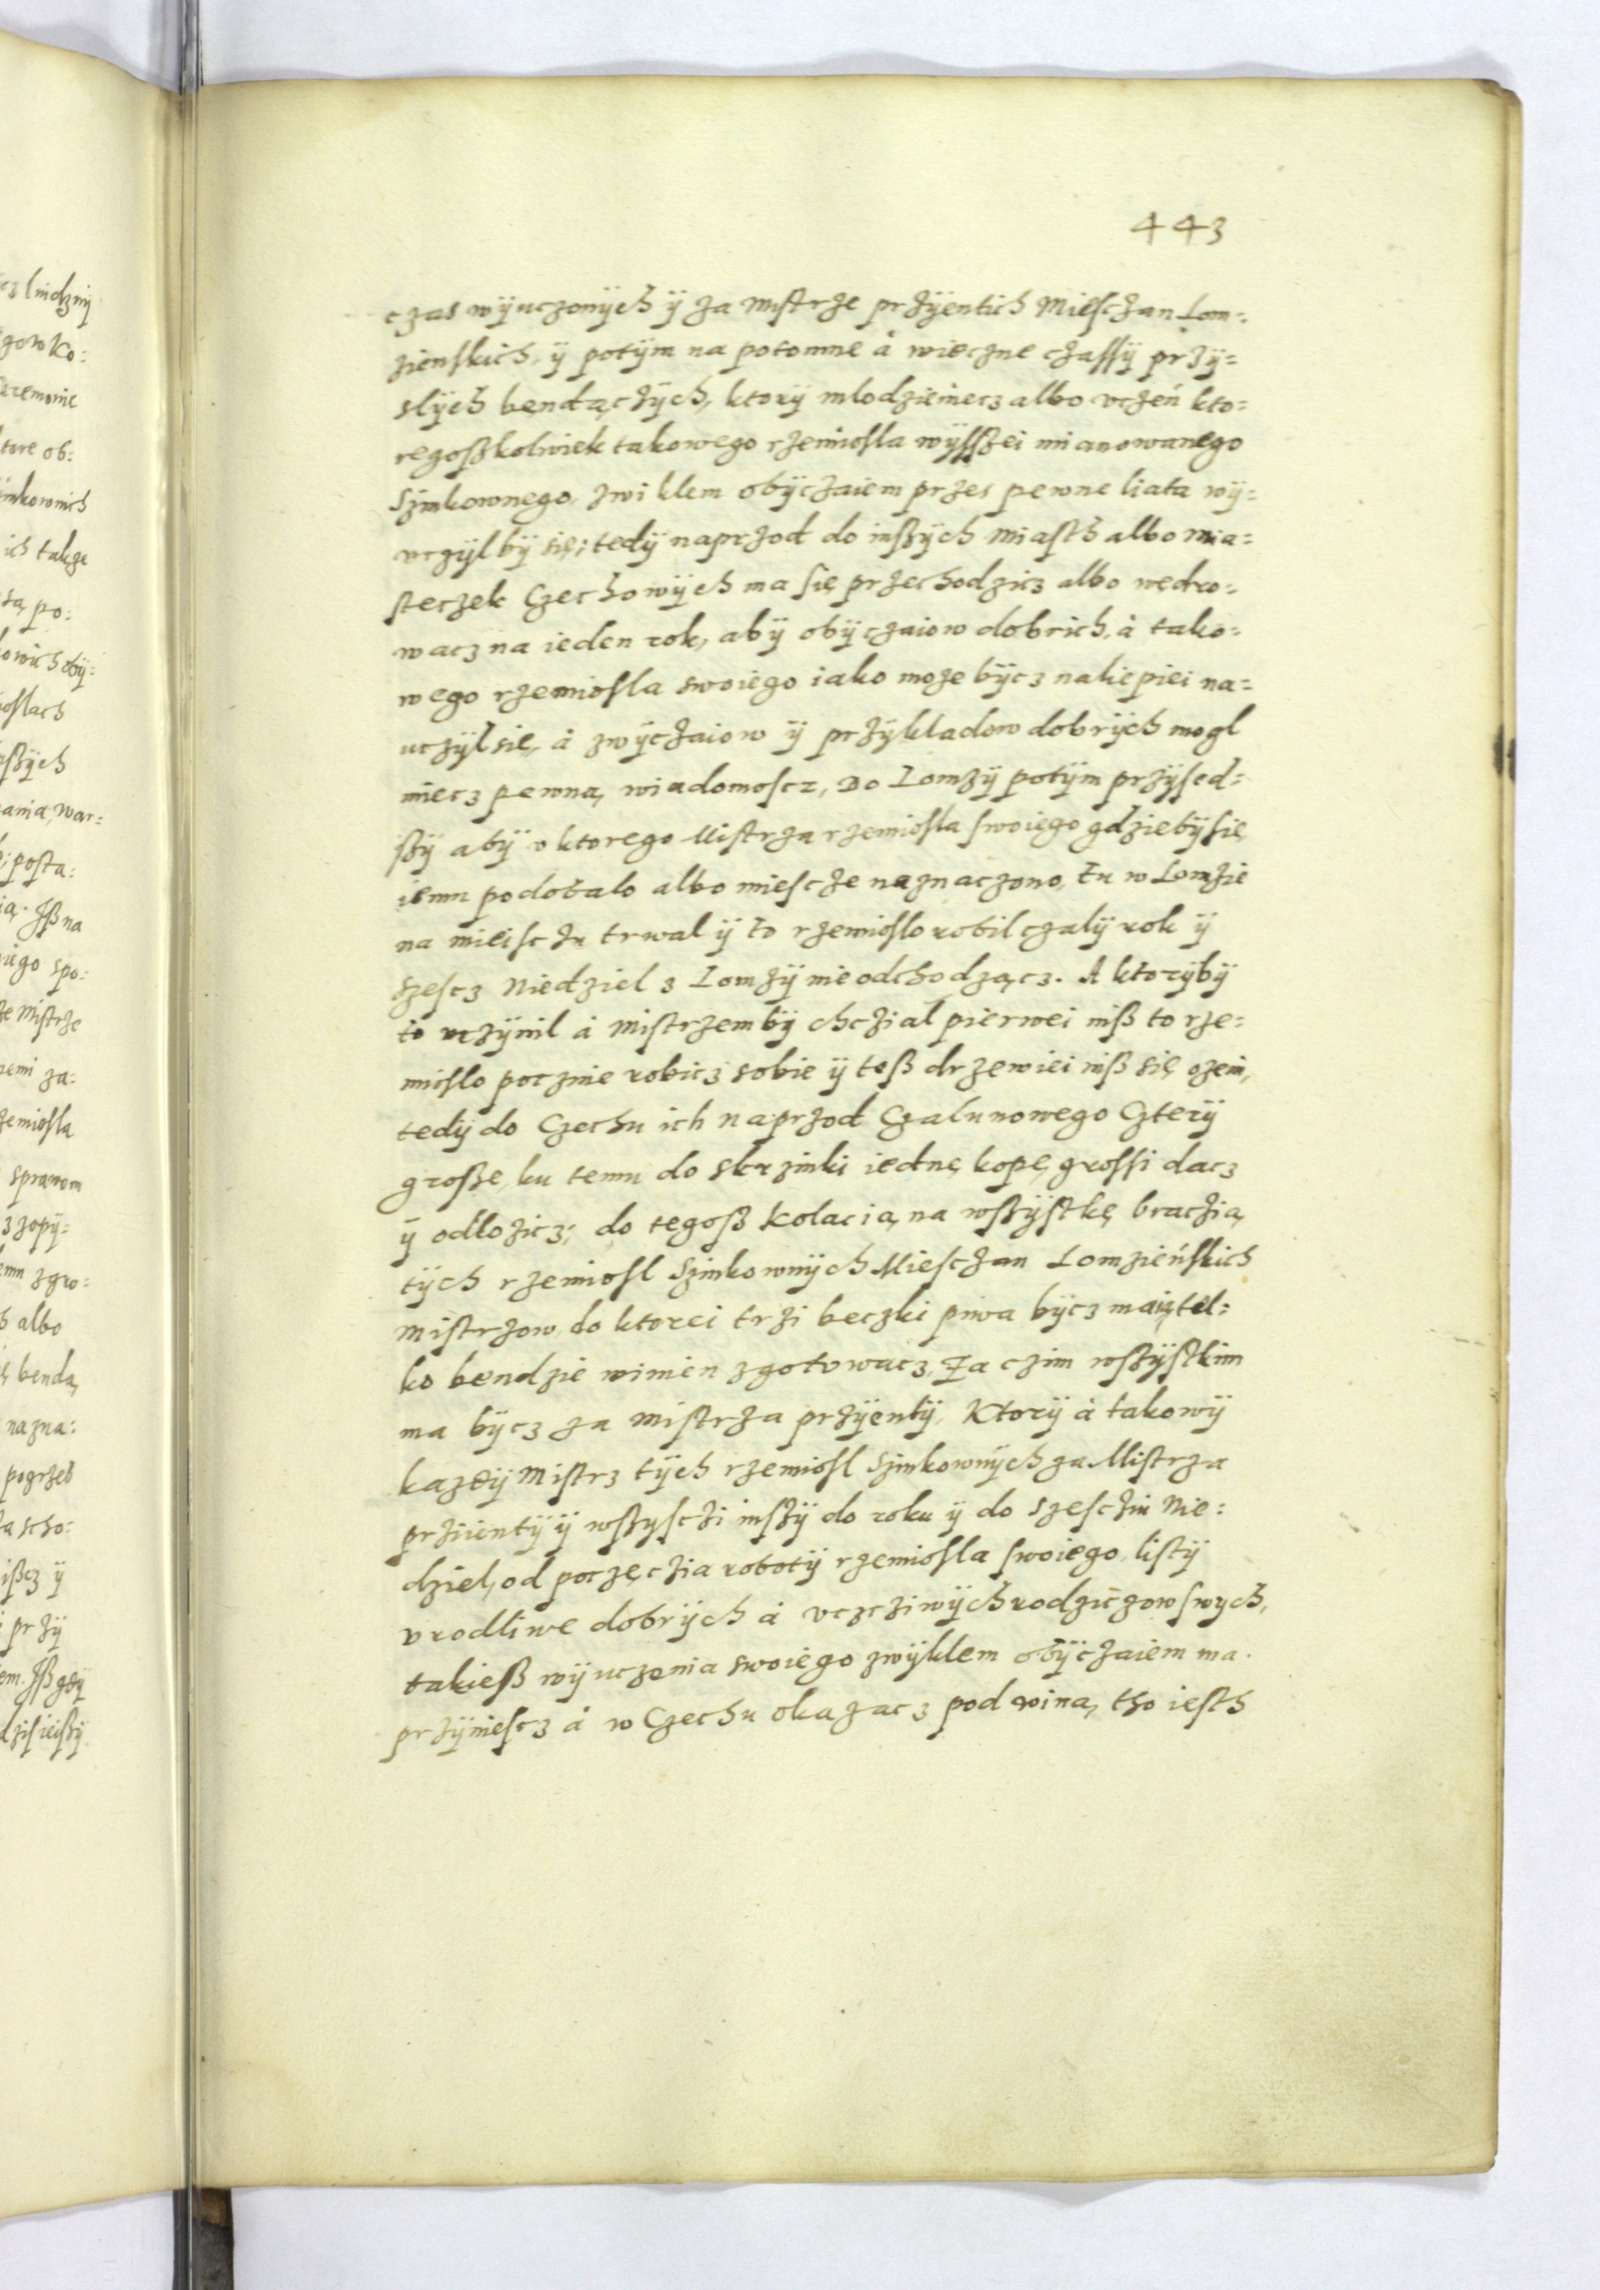 443
czas wÿuczonÿch ÿ za mistrze przÿentich Miesczan Lom-
zienskich, ÿ potÿm na potomne à wieczne czassÿ przÿ=
slÿch bendączÿch, ktorÿ mlodzieniecz albo uczeń kto=
regoszkolwiek takowego rzemiosla wÿsszei mianowanego
Szinkownego, zwiklem obÿczaiem przes pewne liata wÿ=
uczÿl bÿ się; tedÿ naprzod do inszÿch miasth albo mia=
steczek Czechowÿch ma się przechodzicz albo wędro=
wacz na ieden rok, abÿ obÿczaiow dobrich, à tako=
wego rzemiosla swoiego iako moze bÿcz naliepiei na=
uczÿl się, à zwÿczaiow ÿ przÿkladow dobrÿch mogl
miecz pewną wiadomoscz, Do Lomzÿ potÿm przÿsed=
szÿ abÿ v ktorego Mistrza rzemiosla swoiego gdziebÿ się
iemu podobalo albo miescze naznaczono, tu w Lomzie
na mieisczu trwal ÿ to rzemioslo robil czalÿ rok ÿ
szescz Niedziel z Lomzÿ nie odchodzącz. A ktorÿbÿ
to uczÿnil à mistrzem bÿ chczial pierwei nisz to rze=
mioslo pocznie robicz sobie ÿ tesz drzewiei nisz się ozeni,
tedÿ do Czechu ich naprzod Czalunowego Czterÿ
grosze, ku temu do skrzinki iednę kopę grossi dacz
ÿ odlozicz; do tegosz Kolacią na wszÿstkę braczią
tÿch rzemiosl Szinkownÿch Miesczan Lomzieńskich
mistrzow, do ktorei trzi beczki piwa bÿcz maią tel=
ko bendzie winien zgotowacz, Za czim wszÿstkim
ma bÿcz za mistrza przÿentÿ, Ktorÿ à takowÿ
kazdÿ Mistrz tÿch rzemiosl Szinkownÿch za Mistrza
prziientÿ ÿ wszysczi inszÿ do roku ÿ do szesczin Nie=
dziel, od poczęczia robotÿ rzemiosla swoiego, listÿ
vrodliwe dobrÿch à vczciwÿch rodziczow swych,
takiesz wÿuczenia swoiego zwÿklem obÿczaiem ma
przÿniescz à w Czechu okazacz pod winą, tho iesth